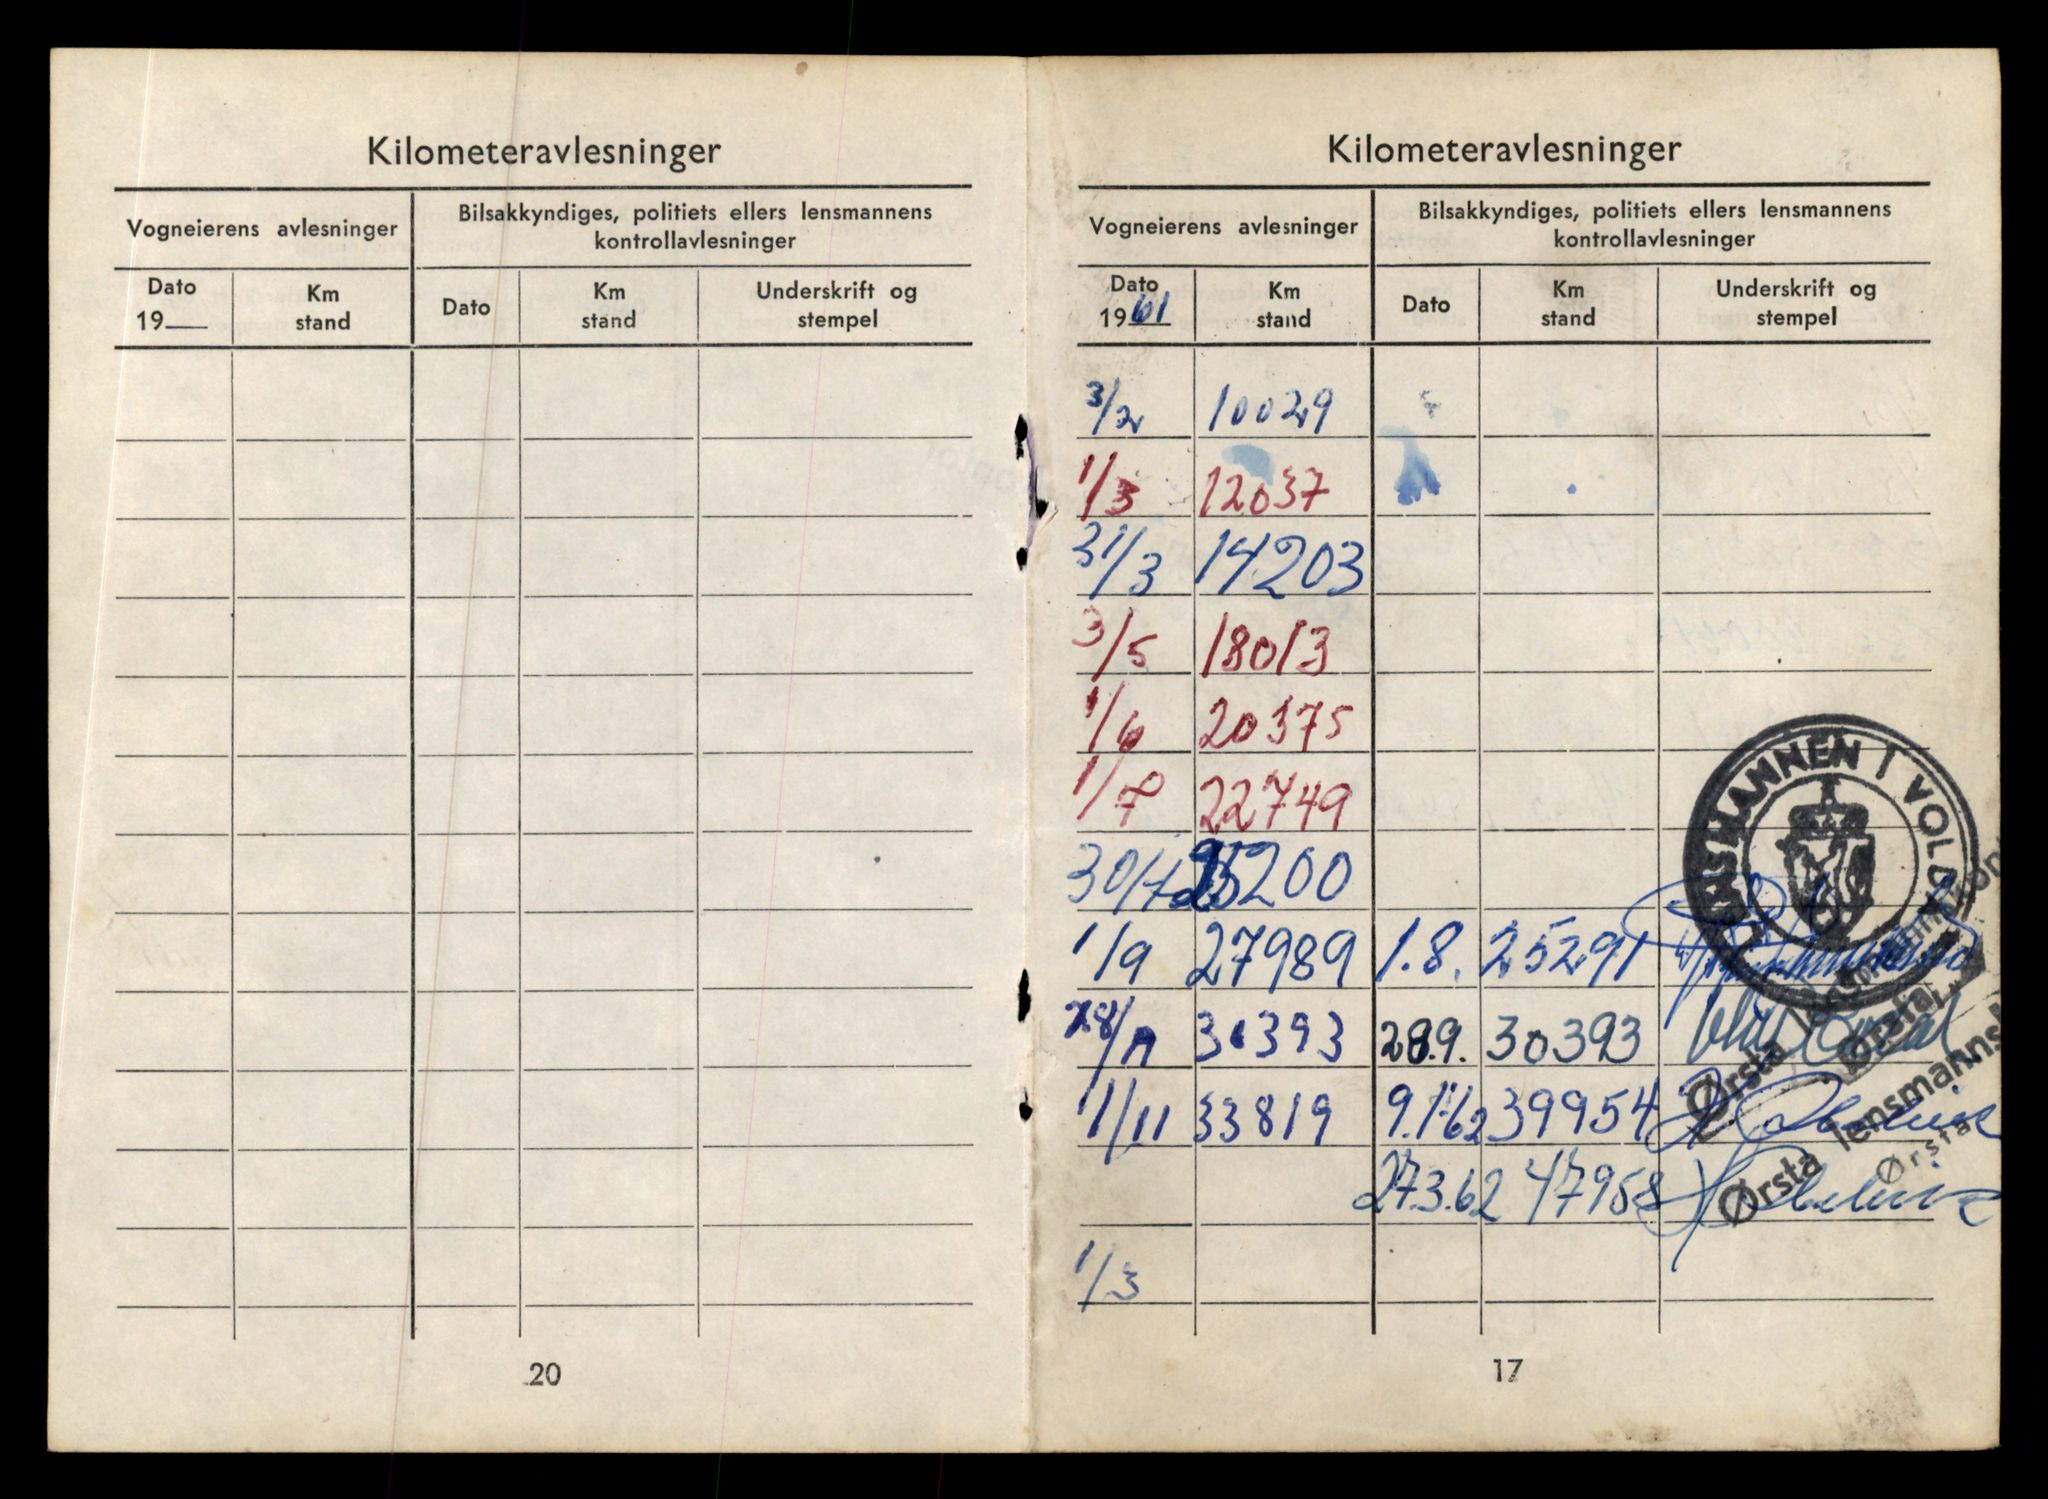 Kilometeravlesninger
Vogneierens avlesninger
Bilsakkyndiges, politiets ellers lensmannens
kontrollavlesninger
Dato
19
Km
stand
Dato
Km
stand
Underskrift og
stempel
20
Kilometeravlesninger
Vogneierens avlesninger
Bilsakkyndiges, politiets ellers lensmannens
kontrollavlesninger
Dato
1961
Km
stand
Dato
Km
stand
Underskrift og
stempel
3/2 10029
1/3 12037
31/3 14203
3/5 18013
1/6 20375
1/7 22749
30/7 25200
1/9 27989 1.8. 25291
28/ 30393 28.9. 30393
1/11 33819 9.1-62 39954
27.3.62 47958
1/3
LENSMANNEN I VOLDA
Ørsta lensmannskontor
Ørsta
Ørsta lensmannsk
Ørsta
17